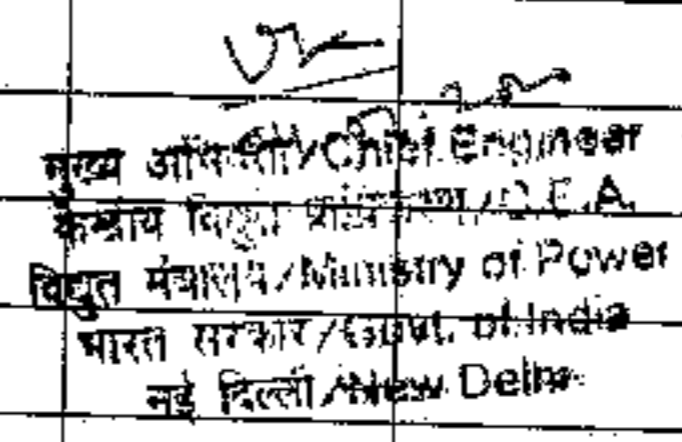 मुख्य अभियन्ता/Chief Engineer
केन्द्रीय विद्युत प्राधिकरण/C.E.A.
विद्युत मंत्रालय/Ministry of Power
भारत सरकार/Govt. of India
नई दिल्ली/New Delhi